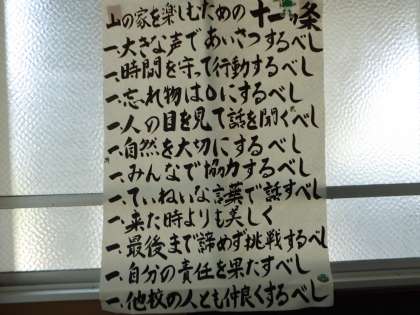 山の家を楽しむための十一条
一、大きな声であいさつするべし
一、時間を守って行動するべし
一、忘れ物は0にするべし
一、人の目を見て話を聞くべし
一、自然を大切にするべし
一、みんなで協力するべし
一、ていねいな言葉で話すべし
一、来た時よりも美しく
一、最後まで諦めず挑戦するべし
一、自分の責任を果たすべし
一、他校の人とも仲良くするべし